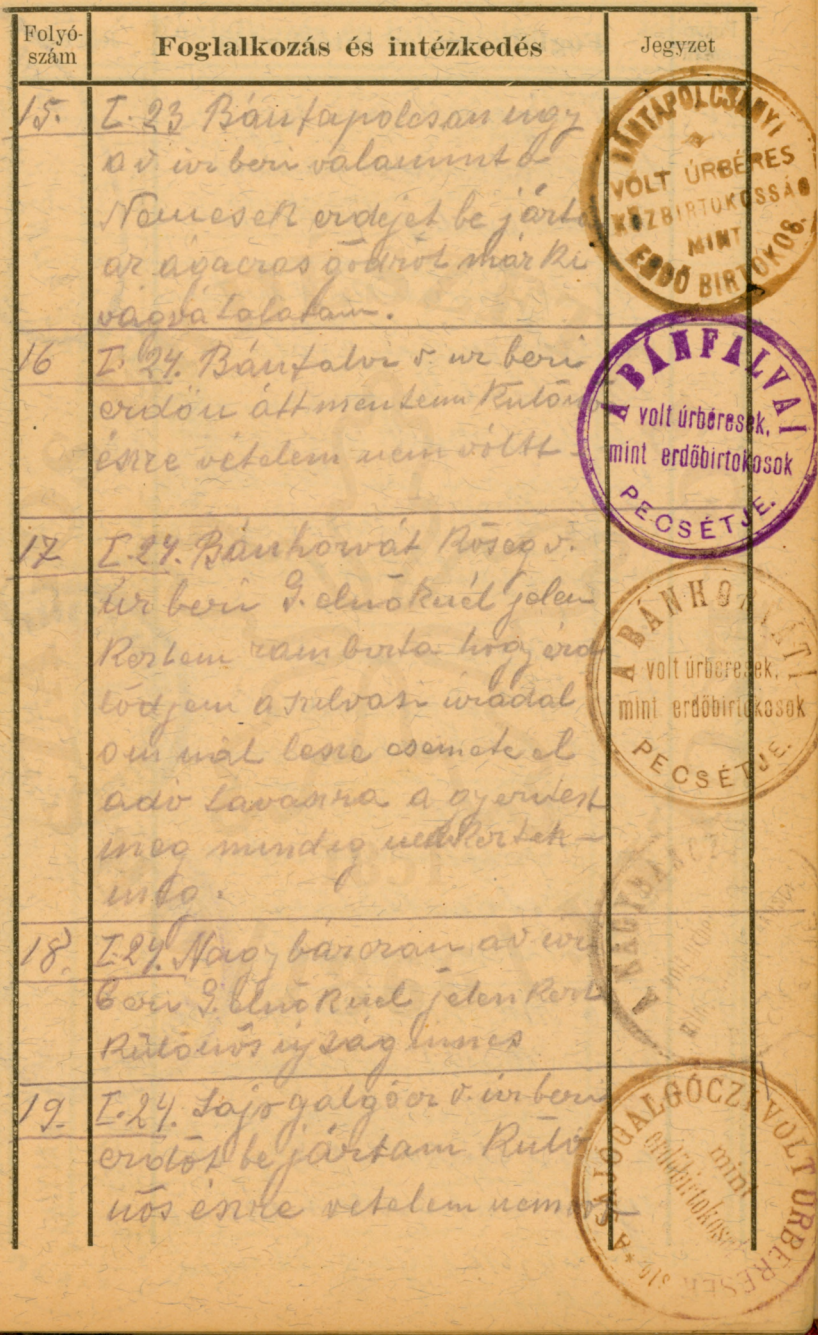 Folyó-
szám
Foglalkozás és intézkedés
Jegyzet
15. I. 23 Bántapolcsan úgy
a v. úr beri valamint a
Nemesek erdejet be járta
az ágacras gödröt már ki
vágva talatam.
BÁNTAPOLCSÁNYI
VOLT ÚRBÉRES
KÖZBIRTOKOSSÁG
MINT
ERDŐ BIRTOKOS
16 I. 24. Bánfalva v. ur beri
erdőn átt mentem Külön
észre vételem nem vóltt
A BÁNFALVAI
volt úrbéresek,
mint erdőbirtokosok
PECSÉTJE.
17 I. 24. Bánhorvát Község v.
úr beri G. elnöknél jelen
keztem ram bizta hogy érd
lődjem a szilvasi uradal
om nál lesze csemete el
adó tavaszra a gyerviest
meg mindig nem kertek
meg.
A BÁNHORVÁTI
volt úrbéresek,
mint erdőbirtokosok
PECSÉTJE.
18. I. 24. Nagybárcran a v. úr
beri G. elnöknel jelen kezt
Külónös ujság nincs
A NAGYBARCZ
19. I. 24. Sajogalgócz v. úr beri
erdőt be jártam Külö
nös észre vetelem nem
A SAJÓGALGÓCZI VOLT ÚRBÉRESEK
mint
erdőbirtokosok